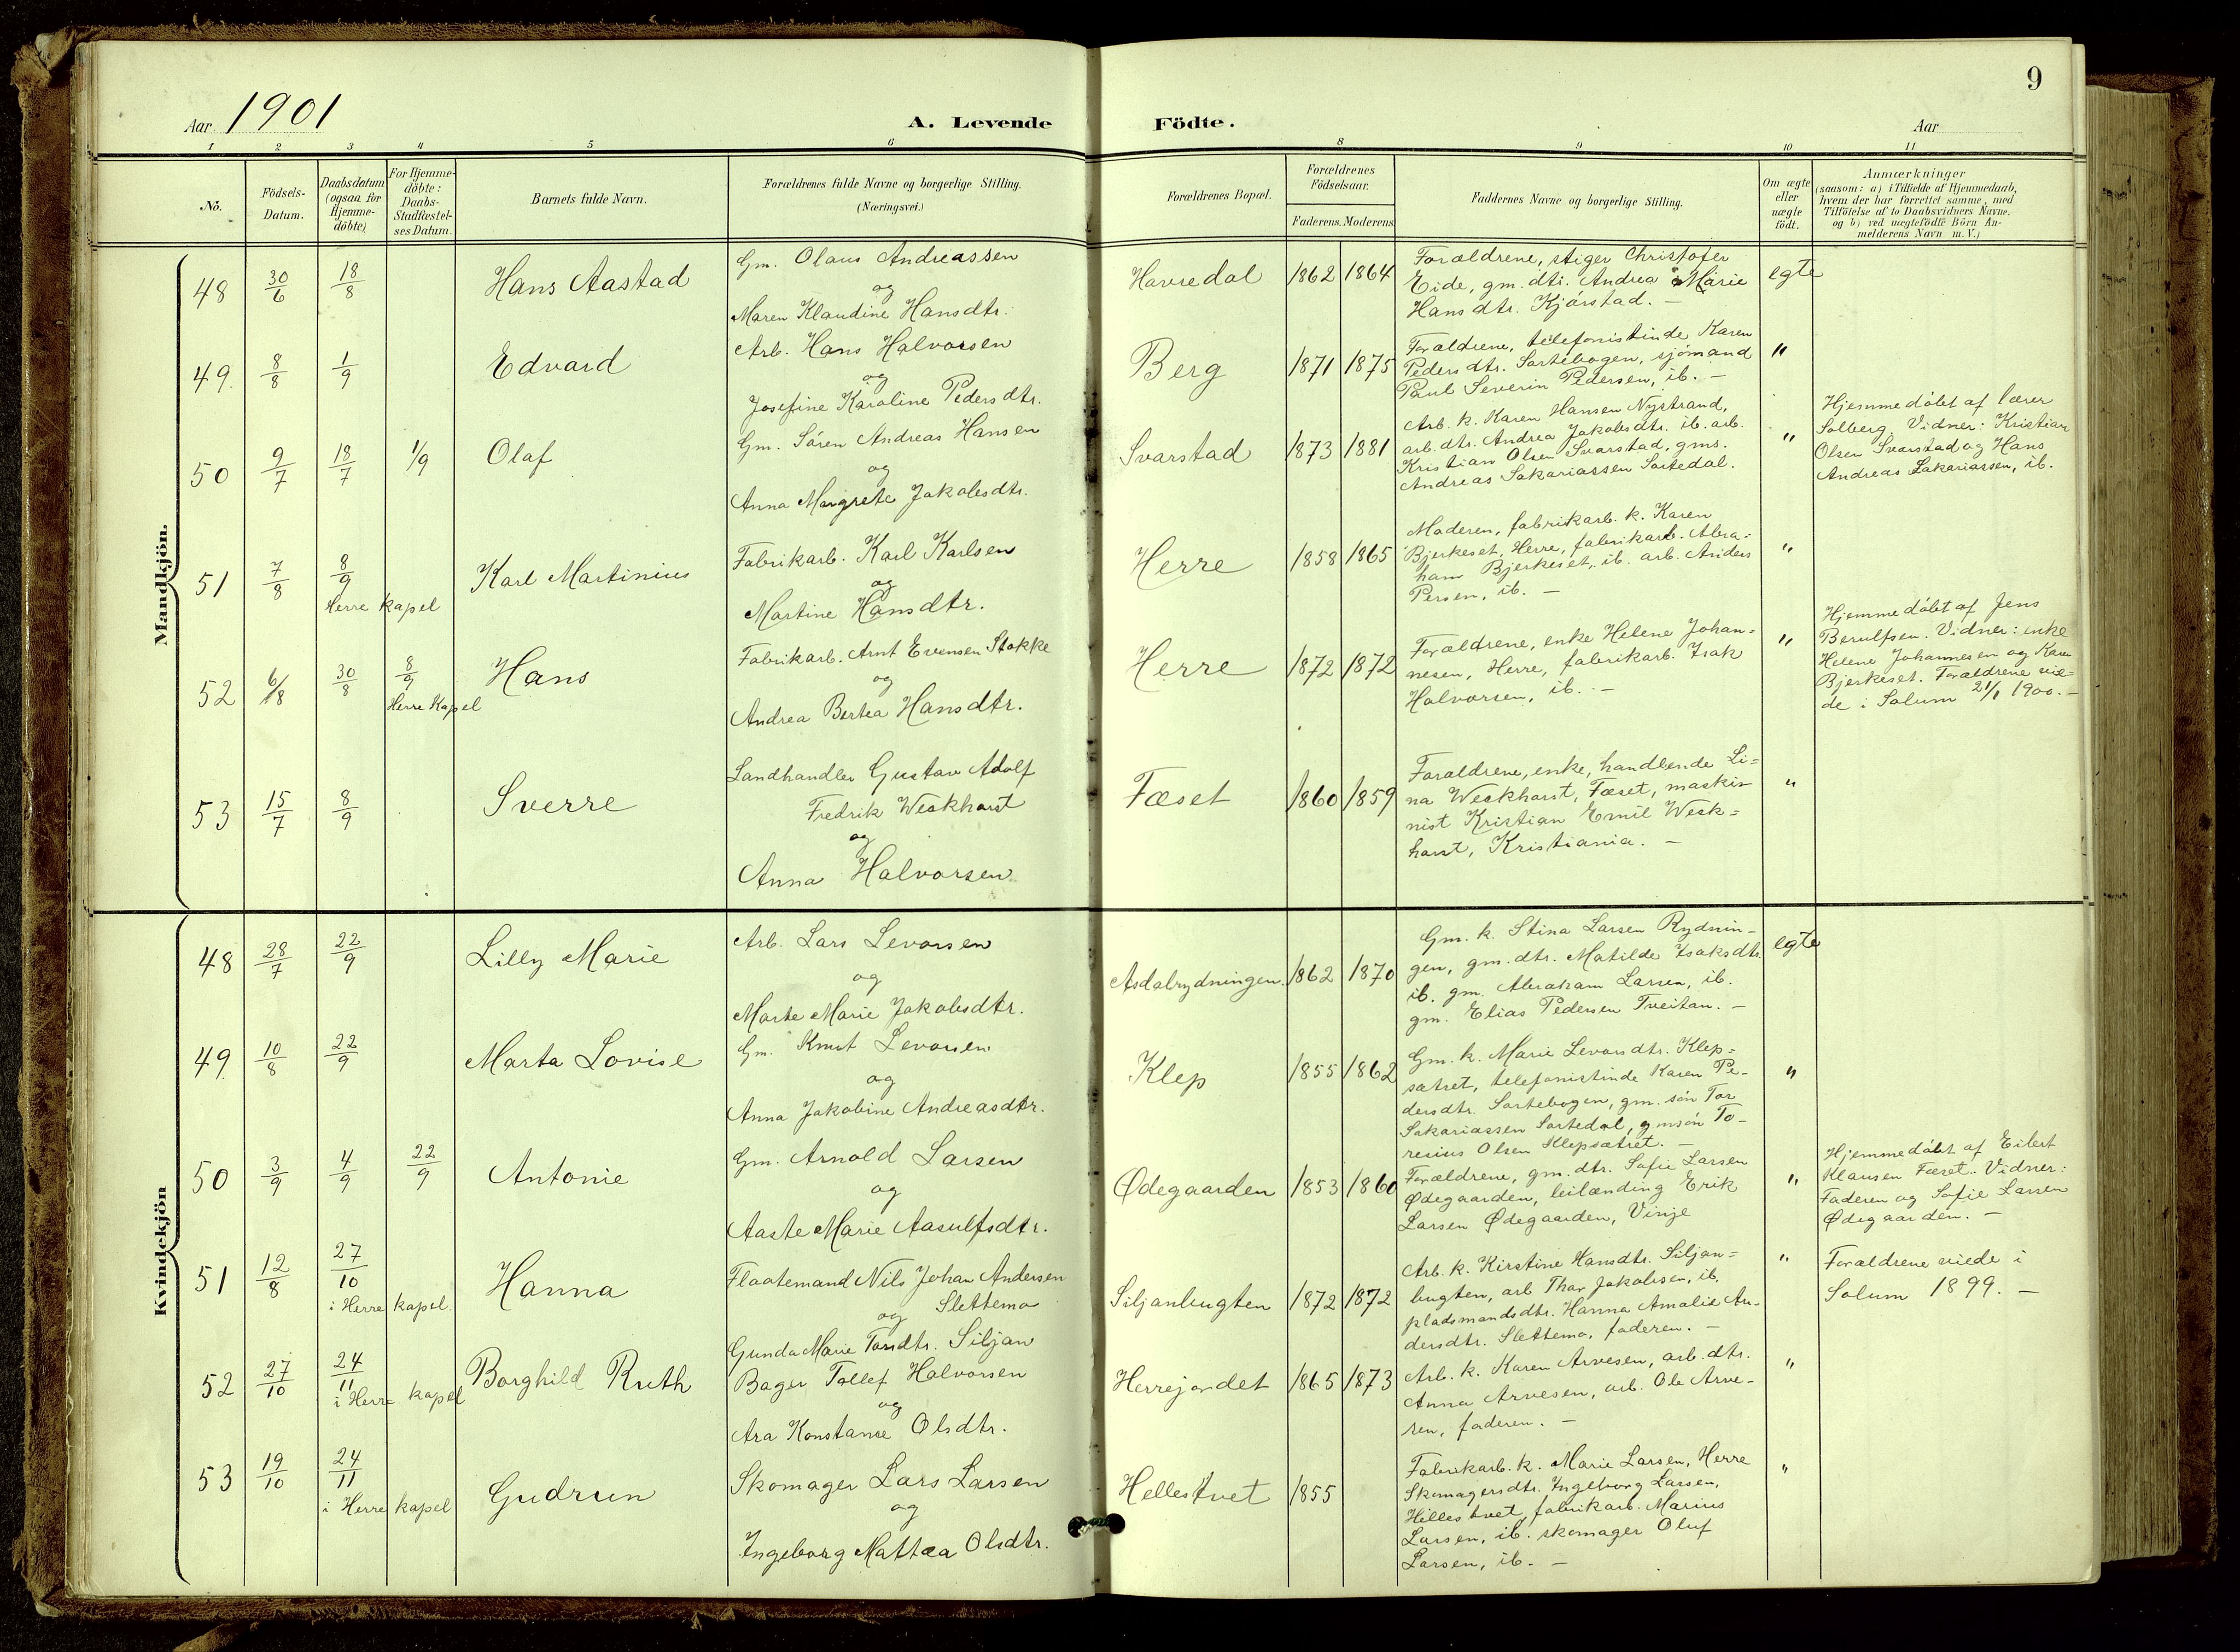 9
Aar 1901
A. Levende
Födte.
Aar
1 2 3 4 5 6 8 9 10 11
No.
Födsels-
Datum.
Daabsdatum
(ogsaa for
Hjemme-
döbte)
For Hjemme-
döbte:
Daabs-
Stadfæstel-
ses Datum.
Barnets fulde Navn.
Forældrenes fulde Navne og borgerlige Stilling.
(Næringsvei.)
Forældrenes Bopæl.
Forældrenes
Födselsaar.
Faderens. Moderens.
Faddernes Navne og borgerlige Stilling.
Om ægte
eller
uægte
födt.
Anmærkninger
(saasom: a) i Tilfælde af Hjemmedaab,
hvem der har forrettet samme, med
Tilföielse af to Daabsvidners Navne.
og b) ved uægtefödte Börn An-
melderens Navn m. V.)
Mandkjön.
48 30/6 18/8 Hans Aastad
Gm. Olaus Andreassen
og
Maren Klaudine Hansdtr.
Havredal 1862 1864
Forældrene, stiger Christofer
Eide, gm. dtr. Andrea Marie
Hansdtr. Kjørstad. —
egte
49. 8/8 1/9 Edvard
Arb. Hans Halvorsen
og
Josefine Karoline Pedersdtr.
Berg 1871 1875
Forældrene, telefonistinde Karen
Pedersdtr. Sortebogen, sjømand
Paul Severin Pedersen, ib. —
"
50 9/7 18/7 1/9 Olaf
Gm. Søren Andreas Hansen
og
Anna Margrete Jakobsdtr.
Svarstad 1873 1881
Arb. k. Karen Hansen Nystrand,
arb. dtr. Andrea Jakobsdtr. ib. arb.
Kristian Olsen Svarstad, gms.
Andreas Sakariassen Sortedal.
"
Hjemmedøbt af lærer
Solberg. Vidner: Kristian
Olsen Svarstad og Hans
Andreas Sakariassen, ib.
51 7/8 8/9
Herre kapel
Karl Martinius
Fabrikarb. Karl Karlsen
og
Martine Hansdtr.
Herre 1858 1865
Moderen, fabrikarb. k. Karen
Bjerkeset, Herre, fabrikarb. Abra-
ham Bjerkeset, ib. arb. Anders
Persen, ib. —
"
52 6/8 30/8 8/9
Herre Kapel
Hans
Fabrikarb. Arnt Evensen Stokke
og
Andrea Bertea Hansdtr.
Herre 1872 1872
Forældrene, enke Helene Johan-
nesen, Herre, fabrikarb. Isak
Halvorsen, ib. —
"
Hjemmedøbt af Jens
Berulfsen. Vidner: enke
Helene Johannesen og Karen
Bjerkeset. Forældrene vie-
de i Solum 21/1 1900. —
53 15/7 8/9 Sverre
Landhandler Gustav Adolf
Fredrik Weckhorst
og
Anna Halvorsen
Fæset 1860 1859
Forældrene, enke, handlende Li-
na Weckhorst, Fæset, maskin-
nist Kristian Emil Weck-
horst, Kristiania. —
"
Kvindekjön
48 28/7 22/9 Lilly Marie
Arb. Lars Levorsen
og
Marte Marie Jakobsdtr.
Asdalrydningen. 1862 1870
Gm. k. Stina Larsen Rydnin-
gen, gm. dtr. Matilde Isaksdtr.
ib. gm. Abraham Larsen, ib.
gm. Elias Pedersen Tveitan. —
egte
49. 10/8 22/9 Marta Lovise
Gm. Knut Levorsen
og
Anna Jakobine Andreasdtr.
Klep 1855 1862
Gm. k. Marie Levorsdtr. Klep-
sætret, telefonistinde Karen Pe-
dersdtr. Sortebogen, gm. søn Tor
Sakariassen Sortedal, gm søn To-
resius Olsen Klepsætret. —
"
50 3/9 4/9 22/9 Antonie
Gm. Arnold Larsen
og
Aaste Marie Aasulfsdtr.
Ødegaarden 1853 1860
Forældrene, gm. dtr. Sofie Larsen
Ødegaarden, leilænding Erik
Larsen Ødegaarden, Vinje
"
Hjemmedøbt af Eilert
Klausen Fæset. Vidner:
Faderen og Sofie Larsen
Ødegaarden. —
51 12/8 27/10
i Herre kapel
Hanna
Flaatemand Nils Johan Andersen
og Slettemo
Gunda Marie Torsdtr. Siljan
Siljanbugten 1872 1872
Arb. k. Kirstine Hansdtr. Siljan-
bugten, arb Thor Jakobsen, ib.
pladsmandsdtr. Hanna Amalie An-
dersdtr. Slettemo, faderen. —
"
Forældrene viede i
Solum 1899. —
52 27/10 24/11
i Herre kapel
Borghild Ruth
Bager Tollef Halvorsen
og
Ara Konstanse Olsdtr.
Herrejordet 1865 1873
Arb. k. Karen Arvesen, arb. dtr.
Anna Arvesen, arb. Ole Arve-
sen, faderen. —
"
53 19/10 24/11
i Herre kapel
Gudrun
Skomager Lars Larsen
og
Ingeborg Mattea Olsdtr.
Hellestvet 1855
Fabrikarb. k. Marie Larsen, Herre
Skomagersdtr. Ingeborg Larsen,
Hillestvet, fabrikarb. Marius
Larsen, ib. skomager Oluf
Larsen, ib. —
"